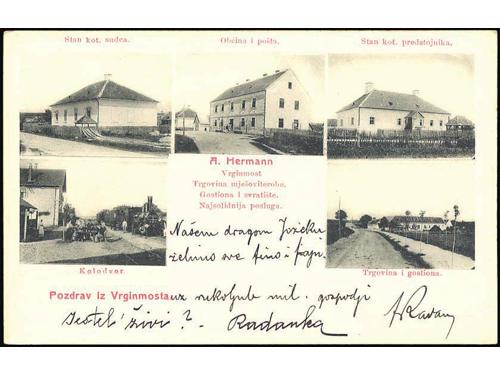 Stan kot. sudca.
Obćina i pošta.
Stan kot. predstojnika.
A. Hermann
Vrginmost
Trgovina mješovite robe.
Gostiona i svratište.
Najsolidnija posluga.
Kolodvor.
Trgovina i gostiona.
Našem dragom
želimo sve fino i
Pozdrav iz Vrginmosta
uz nekoljub mil. gospodji
živi? Radanka